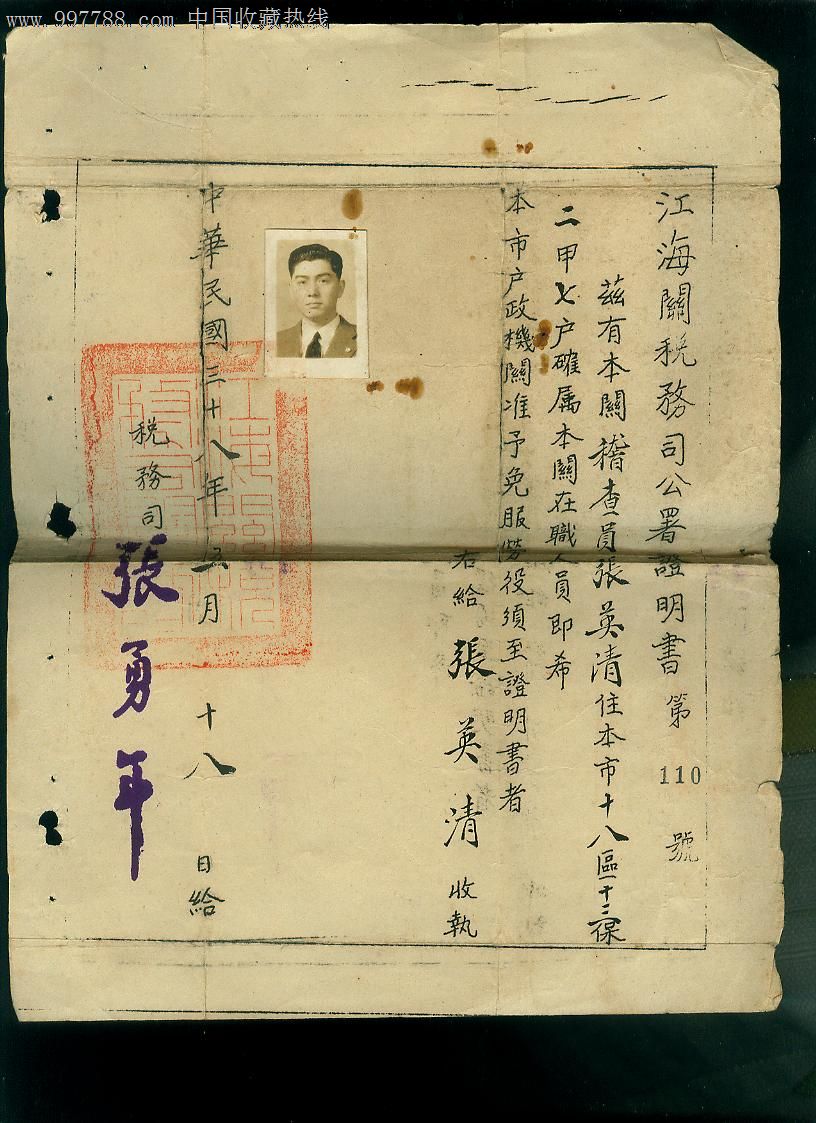 www.997788.com 中国收藏热线
江海關税務司公署證明書第110號
茲有本關稽查員張英清住本市十八區十三保
二甲七户確属本關在職人員即希
本市户政機關准予免服勞役須至證明書者
右給張英清收執
中華民國三十八年五月十八日給
税務司張勇年